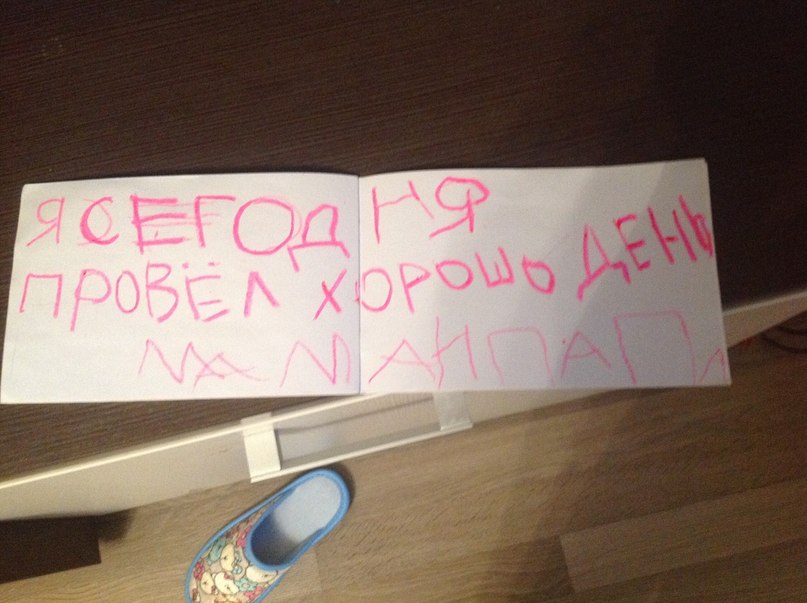 Я СЕГОДНЯ
ПРОВЁЛ ХОРОШО ДЕНЬ
МАМАНПАПА